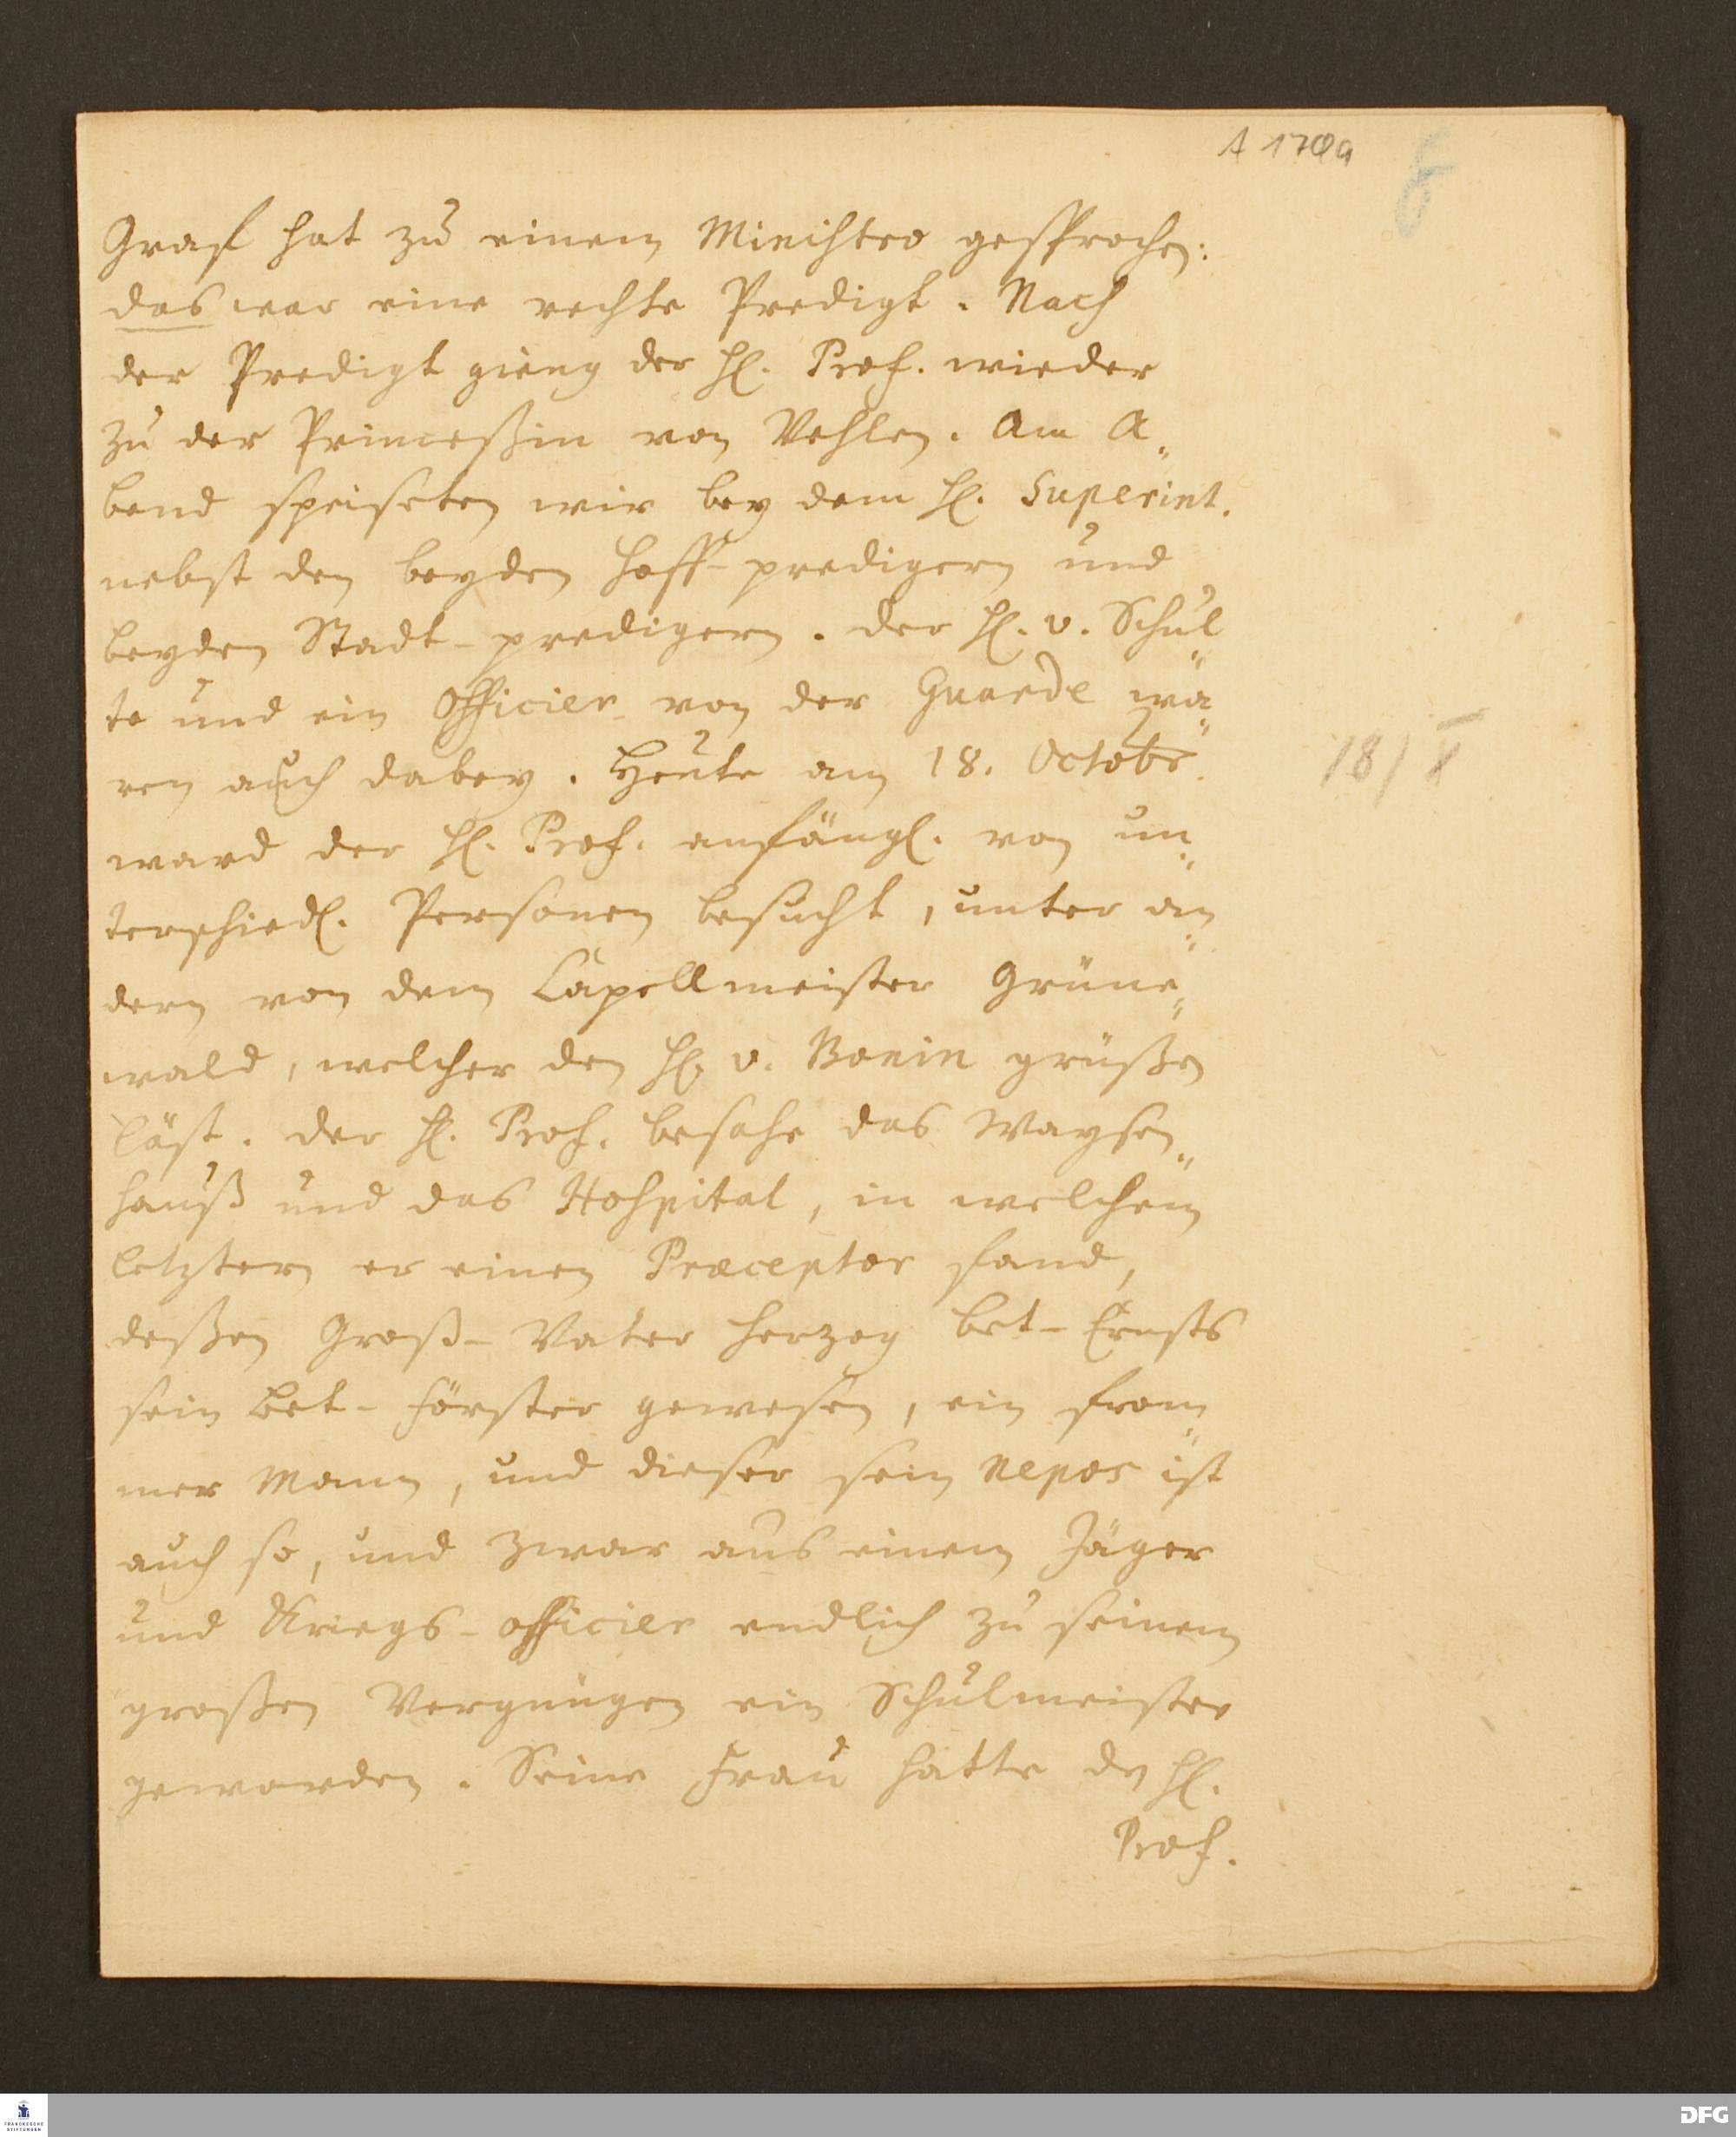 A 170a
6
Graf hat zu einem Ministro gesprochen:
das war eine rechte Predigt. Nach
der Predigt gieng der H. Prof. wieder
zu der Princeßin von Vehlen. Am A„
bend speiseten wir bey dem H. Superint.
nebst den beyden Hoff-predigern und
beyden Stadt-predigern. der H. v. Schul„
te und ein Officier von der Guarde wa„
ren auch dabey. Heute am 18. Octobr.
18/X
ward der H. Prof. anfängl. von un„
terschiedl. Personen besucht, unter an„
dern von dem Capellmeister Grüne„
wald, welcher den H. v. Bonin grüßen
läst. der H. Prof. besahe das Waysen„
hauß und das Hospital, in welchem
letztern er einen Præceptor fand,
deßen Groß-Vater Herzog bet-Ernsts
sein bet-förster gewesen, ein from„
mer Mann, und dieser sein nepos ist
auch so, und zwar aus einem Jäger
und Kriegs-officier endlich zu seinem
großen Vergnügen ein Schulmeister
geworden. Seine Frau hatte den H.
Prof.
FRANCKESCHE
STIFTUNGEN
DFG